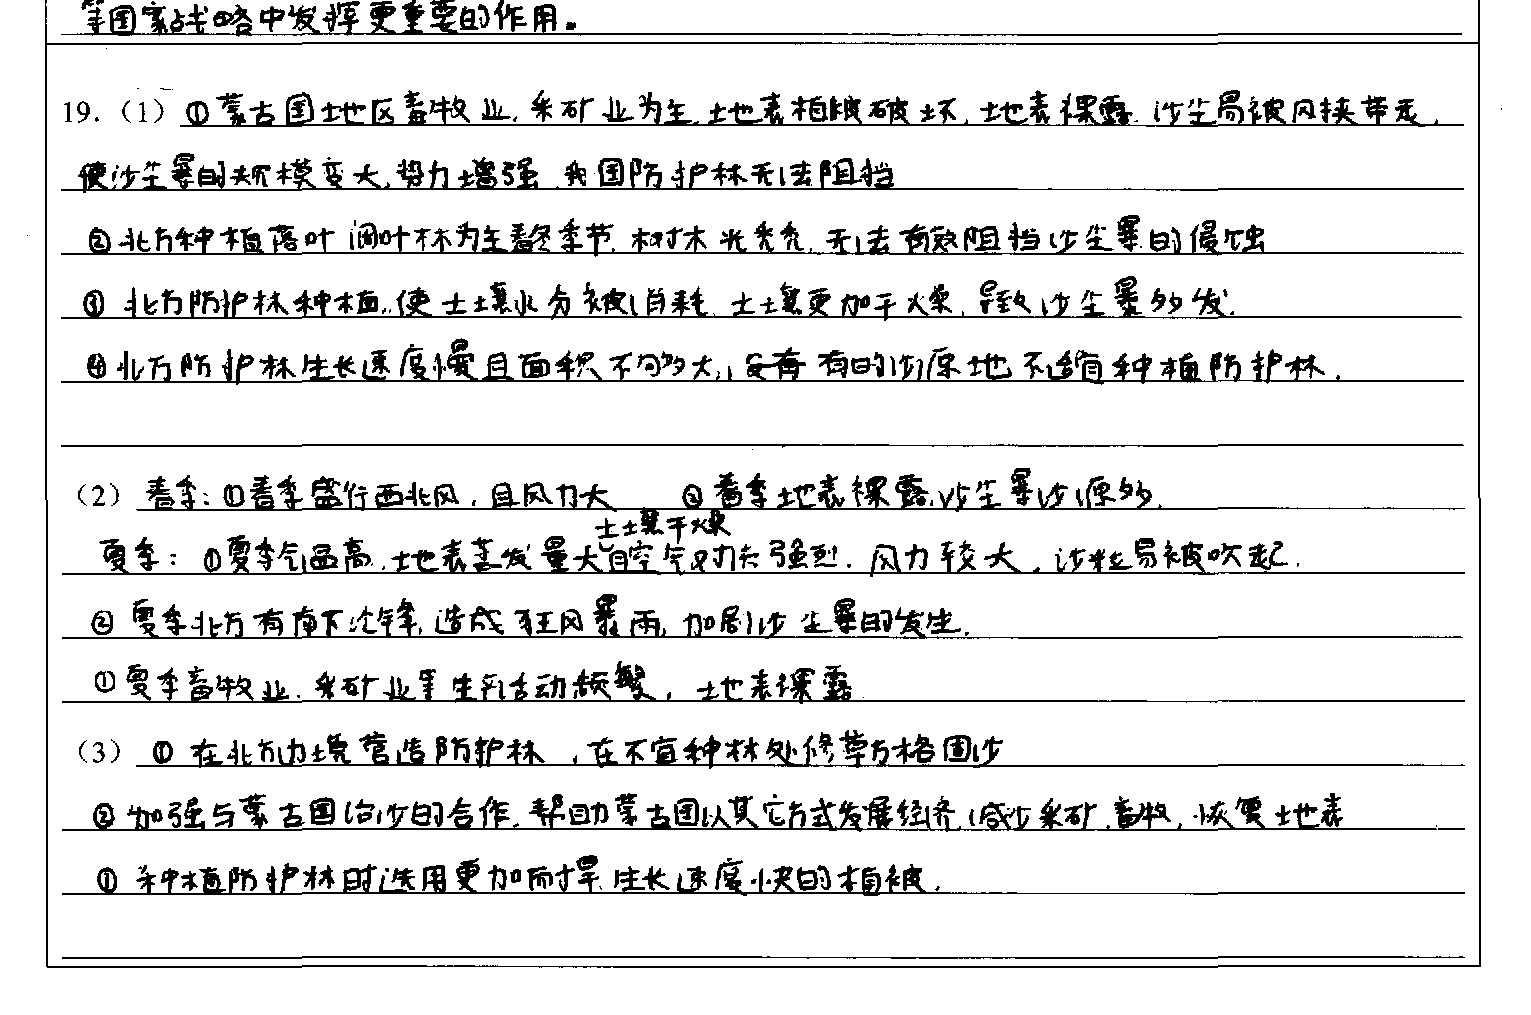 等国家战略中发挥更重要的作用。
19.（1）①蒙古国地区畜牧业，采矿业为主，地表植被破坏，地表裸露，沙尘易被风挟带走，
使沙尘暴的规模变大，势力增强，我国防护林无法阻挡
②北方种植落叶阔叶林为主，冬季节，树木光秃秃，无法有效阻挡沙尘暴的侵蚀
③北方防护林种植，使土壤水分被消耗，土壤更加干燥，导致沙尘暴多发.
④北方防护林生长速度慢且面积不够大，，有的沙源地不适宜种植防护林.
（2）春季：①春季盛行西北风，且风力大 ②春季地表裸露，沙尘暴沙源多.
土壤干燥
夏季：①夏季气温高，地表蒸发量大，且空气对流强烈.风力较大，沙粒易被吹起.
②夏季北方有南下冷锋，造成狂风暴雨，加剧沙尘暴的发生.
①夏季畜牧业、采矿业等生产活动频繁，地表裸露
（3）①在北方边境营造防护林，在不宜种林处修草方格固沙
②加强与蒙古国治沙的合作，帮助蒙古国以其它方式发展经济，减少采矿、畜牧，恢复地表
①种植防护林时选用更加耐旱，生长速度快的植被.